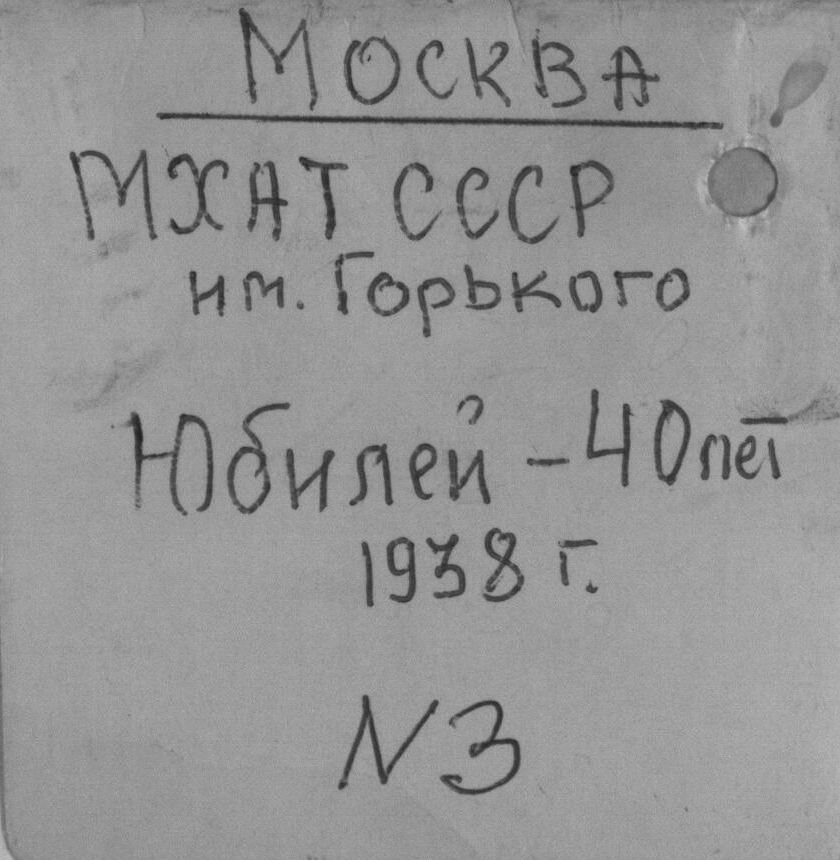 МОСКВА
МХАТ СССР
им. Горького
Юбилей - 40 лет
1938 г.
N 3